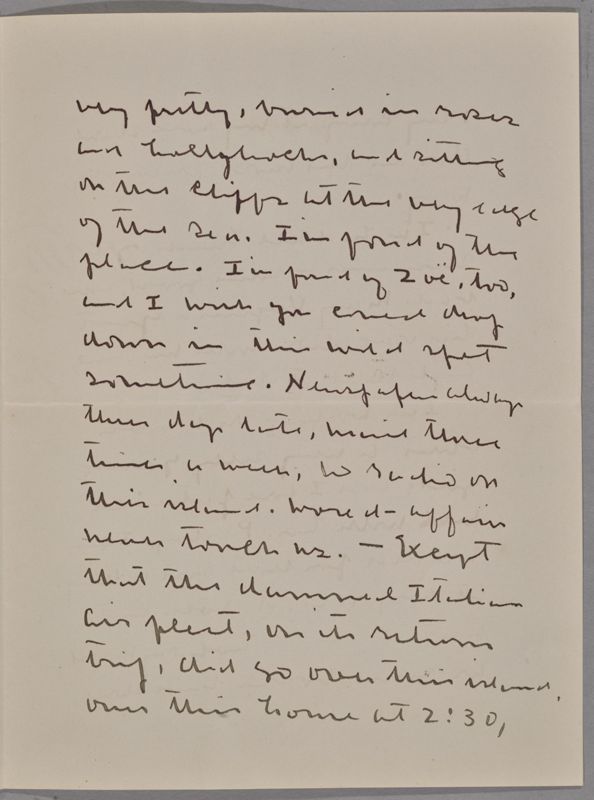 very pretty, buried in roses
and hollyhocks, and sitting
on the cliffs at the very edge
of the sea. I'm fond of the
place. I'm fond of Zoë, too,
and I wish you could drop
down in this wild spot
sometime. Newspapers always
three days late, mail three
times a week, no radio on
this island. World-affairs
never touch us. — Except
that the damned Italian
air fleet, on its return
trip, did go over this island,
over this house at 2:30,